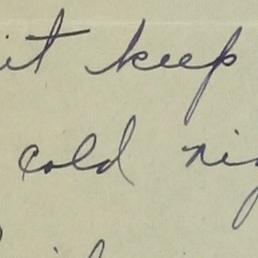 it keep
cold nig